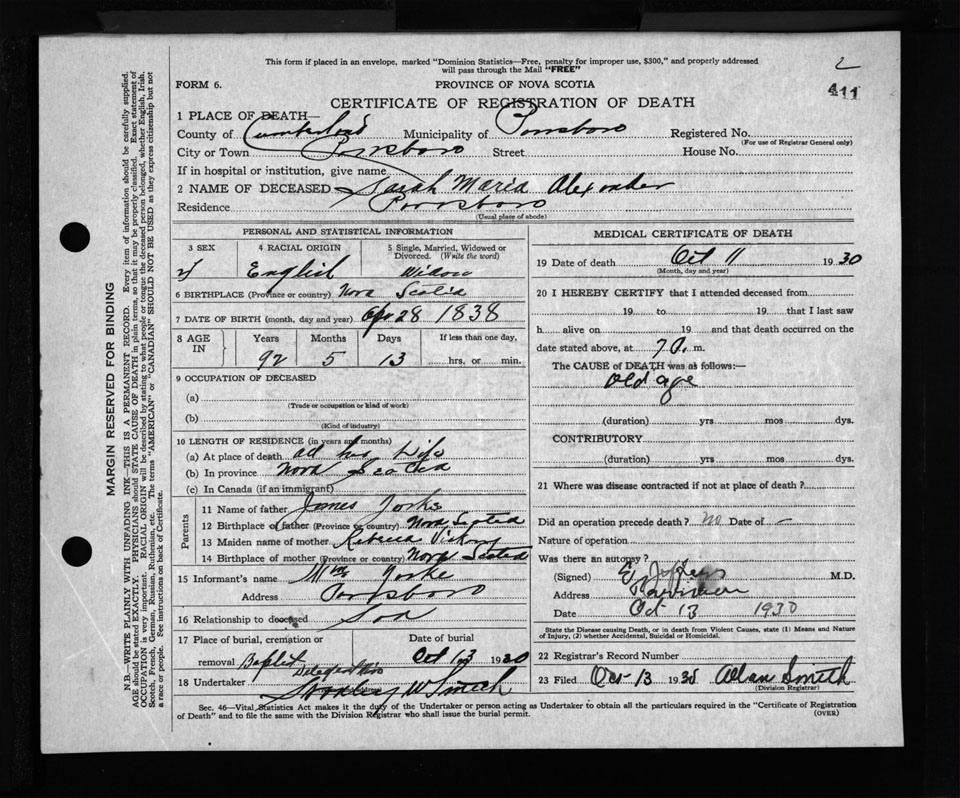 This form if placed in an envelope, marked "Dominion Statistics—Free, penalty for improper use, $300," and properly addressed
will pass through the Mail "FREE"
2
FORM 6.
PROVINCE OF NOVA SCOTIA
411
CERTIFICATE OF REGISTRATION OF DEATH
1 PLACE OF DEATH—
County of Cumberland Municipality of Parrsboro Registered No.
(For use of Registrar General only)
City or Town Parrsboro Street House No.
If in hospital or institution, give name
2 NAME OF DECEASED Sarah Maria Alexander
Residence Parrsboro
(Usual place of abode)
PERSONAL AND STATISTICAL INFORMATION
3 SEX 4 RACIAL ORIGIN 5 Single, Married, Widowed or
Divorced. (Write the word)
f English Widow
6 BIRTHPLACE (Province or country) Nova Scotia
7 DATE OF BIRTH (month, day and year) Apr 28 1838
8 AGE IN Years Months Days If less than one day,
92 5 13 hrs. or min.
9 OCCUPATION OF DECEASED
(a)
(Trade or occupation or kind of work)
(b)
(Kind of industry)
10 LENGTH OF RESIDENCE (in years and months)
(a) At place of death all her Life
(b) In province Nova Scotia
(c) In Canada (if an immigrant)
Parents
11 Name of father James
12 Birthplace of father (Province or country) Nova Scotia
13 Maiden name of mother Rebecca
14 Birthplace of mother (Province or country) Nova Scotia
15 Informant's name
Address Parrsboro
16 Relationship to deceased Son
17 Place of burial, cremation or Date of burial
removal Baptist Oct 13 1930
18 Undertaker W Smith
MEDICAL CERTIFICATE OF DEATH
19 Date of death Oct 11 1930
(Month, day and year)
20 I HEREBY CERTIFY that I attended deceased from
19 to 19 that I last saw
h alive on 19 and that death occurred on
date stated above, at 7 a. m.
The CAUSE of DEATH was as follows:—
Old age
(duration) yrs mos dys.
CONTRIBUTORY
(duration) yrs mos dys.
21 Where was disease contracted if not at place of death?
Did an operation precede death? no Date of –
Nature of operation
Was there an autopsy?
(Signed) M.D.
Address
Date Oct 13 1930
State the Disease causing Death, or in death from Violent Causes, state (1) Means and Nature
of Injury, (2) whether Accidental, Suicidal or Homicidal.
22 Registrar's Record Number
23 Filed Oct 13 1930 Alan Smith
(Division Registrar)
Sec. 46—Vital Statistics Act makes it the duty of the Undertaker or person acting as Undertaker to obtain all the particulars required in the "Certificate of Registration
of Death" and to file the same with the Division Registrar who shall issue the burial permit.
(OVER)
MARGIN RESERVED FOR BINDING
N.B.—WRITE PLAINLY WITH UNFADING INK—THIS IS A PERMANENT RECORD. Every item of information should be carefully supplied.
AGE should be stated EXACTLY. PHYSICIANS should STATE CAUSE OF DEATH in plain terms, so that it may be properly classified. Exact statement of
OCCUPATION is very important. RACIAL ORIGIN will be described by stating to what people or tongue the deceased person belonged, whether English, Irish,
Scotch, French, German, Russian, Ruthenian, etc. The terms "AMERICAN" or "CANADIAN" SHOULD NOT BE USED as they express citizenship but not
a race or people. See instructions on back of Certificate.